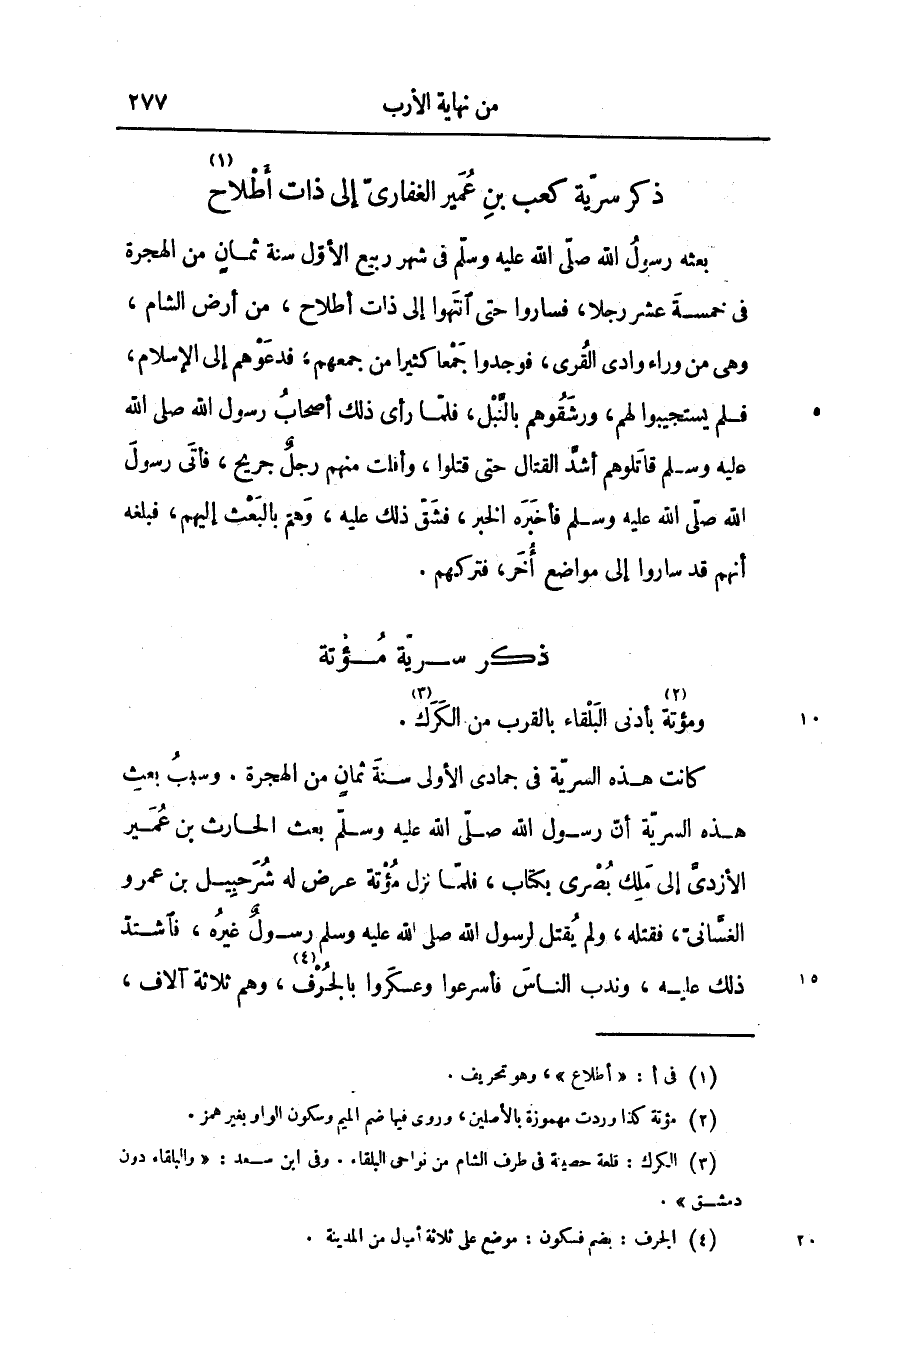 من نهاية الأرب ٢٧٧
ذكر سريّة كعب بنِ عُمَير الغفارىّ إلى ذات أَطْلاح (١)
بعثه رسولُ الله صلّى الله عليه وسلّم فى شهر ربيع الأوّل سنة ثمــانٍ من الهجرة
فى خمســةَ عشر رجلا، فساروا حتى ٱنتَهَوا إلى ذات أطلاح ، من أرض الشام ،
وهى من وراء وادى القُرى، فوجدوا جَمْعا كثيرا من جمعهم؛ فدعَوْهم إلى الإسلام،
فــلم يستجيبوا لهم، ورشَقُوهم بالنَّبْل، فلمّــا رأى ذلك أصحابُ رسول الله صلى الله ٥
عليه وســلم قاتَلوهم أشدَّ القتال حتى قتلوا ، وأفلت منهم رجلٌ جريح ، فأتَى رسولَ
الله صلّى الله عليه وســلم فأخبَرَه الخبر ، فشَقّ ذلك عليه ، وَهَمّ بالبَعْث إليهم، فبلغه
أنهم قد ساروا إلى مواضع أُخَر، فتركهم .
ذكر ســريّة مُــؤْتة
ومؤتة (٢) بأدنى البَلْقاء بالقرب من الكَرَك (٣) . ١٠
كانت هــذه السريّة فى جمادى الأولى سنةَ ثمانٍ من الهجرة . وسببُ بعثِ
هــذه السريّة أنّ رســول الله صلّى الله عليه وسلّم بعث الحارث بن عُمَــير
الأزدىَّ إلى مَلِك بُصْرى بكتاب ، فلمّــا نزل مُؤْتة عرض له شُرَحبِيــل بن عمرو
الغسّانىّ، فقتله ، ولم يُقتل لرسول الله صلى الله عليه وسلم رســولٌ غيرُه ، فٱشــتدّ
ذلك عليــه ، وندب النــاسَ فأسرعوا وعسكَروا بالجُرْف (٤) ، وهم ثلاثة آلاف ، ١٥
(١) فى أ : « أطلاع » ، وهو تحريف .
(٢) مؤتة كذا وردت مهموزة بالأصلين، وروى فيها ضم الميم وسكون الواو بغير همز .
(٣) الكرك : قلعة حصينة فى طرف الشام من نواحى البلقاء . وفى ابن ســعد : « والبلقاء دون
دمشــق » .
(٤) الجرف : بضم فسكون : موضع على ثلاثة أميال من المدينة . ٢٠